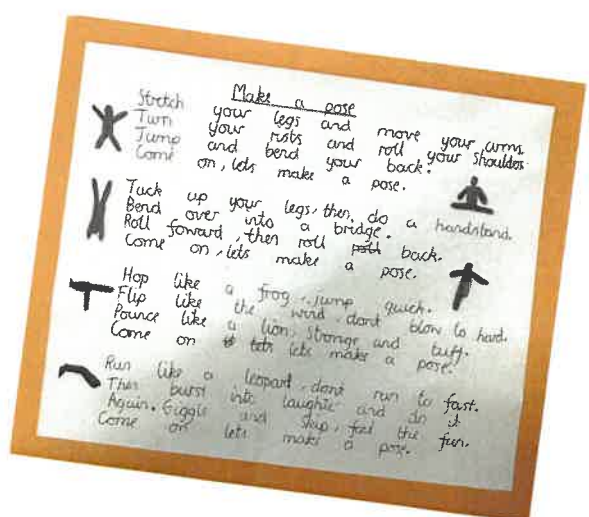 Make a pose
Stretch your legs and move your arms
Turn your rists and roll your shoulders
Jump and bend your back.
Come on, lets make a pose.
Tuck up your legs, then do a handstand.
Bend over into a bridge.
Roll foward, then roll back.
Come on, lets make a pose.
Hop like a frog, jump quick.
Flip like the wind, dont blow to hard.
Pounce like a lion, stronge and tuff.
Come on lets make a pose.
Run like a leopard, dont run to fast.
Then burst into laughter and do it
Again. Giggle and skip, feel the fun.
Come on lets make a pose.